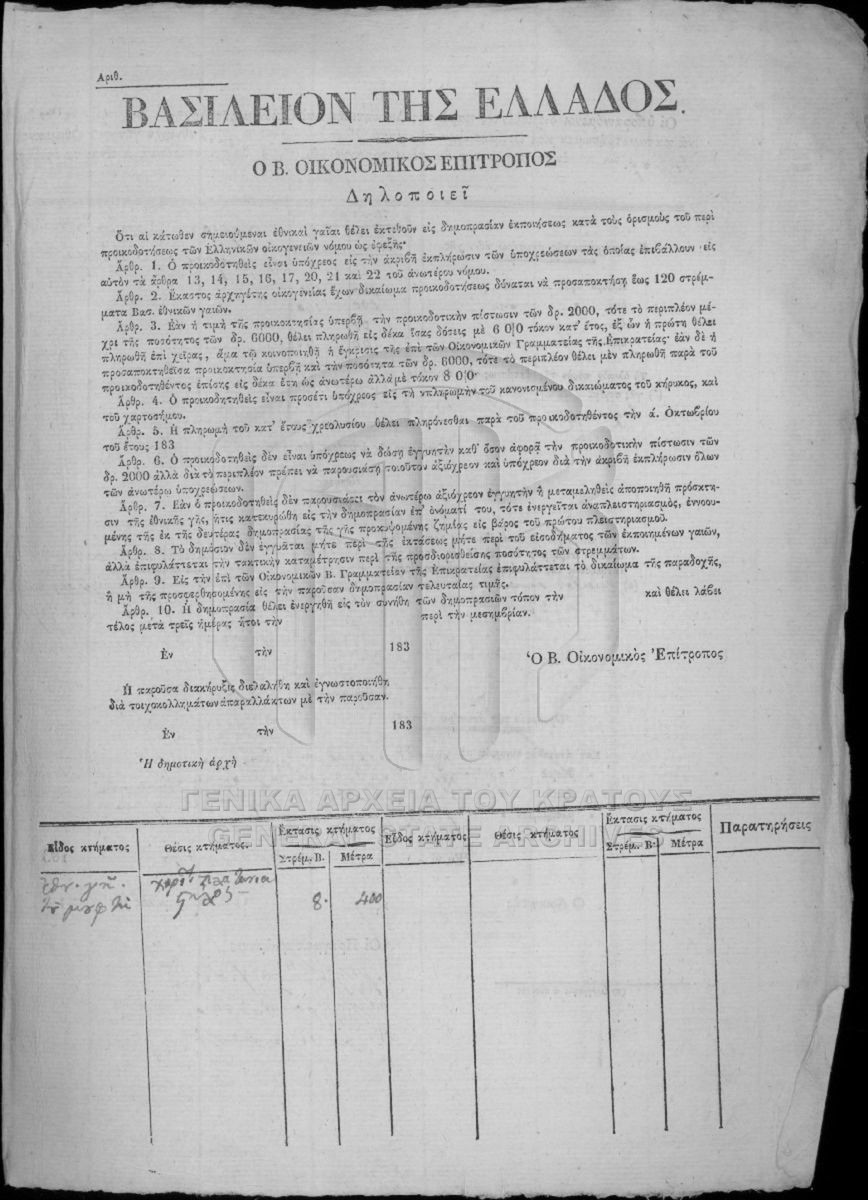 Αριθ.
ΒΑΣΙΛΕΙΟΝ ΤΗΣ ΕΛΛΑΔΟΣ.
Ο Β. ΟΙΚΟΝΟΜΙΚΟΣ ΕΠΙΤΡΟΠΟΣ
Δηλοποιεῖ
Ὅτι αἱ κάτωθεν σημειούμεναι ἐθνικαὶ γαῖαι θέλει ἐκτεθοῦν εἰς δημοπρασίαν ἐκποιήσεως κατὰ τοὺς ὁρισμοὺς τοῦ περὶ
προικοδοτήσεως τῶν Ἑλληνικῶν οἰκογενειῶν νόμου ὡς ἐφεξῆς·
Ἄρθρ. 1. Ὁ προικοδοτηθεὶς εἶναι ὑπόχρεος εἰς τὴν ἀκριβῆ ἐκπλήρωσιν τῶν ὑποχρεώσεων τὰς ὁποίας ἐπιβάλλουν εἰς
αὐτὸν τὰ ἄρθρα 13, 14, 15, 16, 17, 20, 21 καὶ 22 τοῦ ἀνωτέρω νόμου.
Ἄρθρ. 2. Ἕκαστος ἀρχηγέτης οἰκογενείας ἔχων δικαίωμα προικοδοτήσεως δύναται νὰ προσαποκτήσῃ ἕως 120 στρέμ-
ματα Βασ. ἐθνικῶν γαιῶν.
Ἄρθρ. 3. Ἐὰν ἡ τιμὴ τῆς προικοκτησίας ὑπερβῇ τὴν προικοδοτικὴν πίστωσιν τῶν δρ. 2000, τότε τὸ περιπλέον μέ-
χρι τῆς ποσότητος τῶν δρ. 6000, θέλει πληρωθῆ εἰς δέκα ἴσας δόσεις μὲ 6 0|0 τόκον κατ' ἔτος, ἐξ ὧν ἡ πρώτη θέλει
πληρωθῆ ἐπὶ χεῖρας, ἅμα τῷ κοινοποιηθῇ ἡ ἔγκρισις τῆς ἐπὶ τῶν Οἰκονομικῶν Γραμματείας τῆς Ἐπικρατείας· ἐὰν δὲ ἡ
προσαποκτηθεῖσα προικοκτησία ὑπερβῇ καὶ τὴν ποσότητα τῶν δρ. 6000, τότε τὸ περιπλέον θέλει μὲν πληρωθῆ παρὰ τοῦ
προικοδοτηθέντος ἐπίσης εἰς δέκα ἔτη ὡς ἀνωτέρω ἀλλὰ μὲ τόκον 8 0|0·
Ἄρθρ. 4. Ὁ προικοδοτηθεὶς εἶναι προσέτι ὑπόχρεος εἰς τὴν πληρωμὴν τοῦ κανονισμένου δικαιώματος τοῦ κήρυκος, καὶ
τοῦ χαρτοσήμου.
Ἄρθρ. 5. Ἡ πληρωμὴ τοῦ κατ' ἔτους χρεολυσίου θέλει πληρόνεσθαι παρὰ τοῦ προικοδοτηθέντος τὴν ά. Ὀκτωβρίου
τοῦ ἔτους 183
Ἄρθρ. 6. Ὁ προικοδοτηθεὶς δὲν εἶναι ὑπόχρεως νὰ δώσῃ ἐγγυητὴν καθ' ὅσον ἀφορᾷ τὴν προικοδοτικὴν πίστωσιν τῶν
δρ. 2000 ἀλλὰ διὰ τὸ περιπλέον πρέπει νὰ παρουσιάσῃ τοιοῦτον ἀξιόχρεον καὶ ὑπόχρεον διὰ τὴν ἀκριβῆ ἐκπλήρωσιν ὅλων
τῶν ἀνωτέρω ὑποχρεώσεων.
Ἄρθρ. 7. Ἐὰν ὁ προικοδοτηθεὶς δὲν παρουσιάσει τὸν ἀνωτέρω ἀξιόχρεον ἐγγυητὴν ἢ μεταμεληθεὶς ἀποποιηθῇ πρόσκτη-
σιν τῆς ἐθνικῆς γῆς, ἥτις κατεκυρώθη εἰς τὴν δημοπρασίαν ἐπ' ὀνόματί του, τότε ἐνεργεῖται ἀναπλειστηριασμὸς, ἐννοου-
μένης τῆς ἐκ τῆς δευτέρας δημοπρασίας τῆς γῆς προκυψομένης ζημίας εἰς βάρος τοῦ πρώτου πλειστηριασμοῦ.
Ἄρθρ. 8. Τὸ δημόσιον δὲν ἐγγυᾶται μήτε περὶ τῆς ἐκτάσεως μήτε περὶ τοῦ εἰσοδήματος τῶν ἐκποιημένων γαιῶν,
ἀλλὰ ἐπιφυλάττεται τὴν τακτικὴν καταμέτρησιν περὶ τῆς προσδιορισθείσης ποσότητος τῶν στρεμμάτων.
Ἄρθρ. 9. Εἰς τὴν ἐπὶ τῶν Οἰκονομικῶν Β. Γραμματείαν τῆς Ἐπικρατείας ἐπιφυλάττεται τὸ δικαίωμα τῆς παραδοχῆς,
ἢ μὴ τῆς προσφερθησομένης εἰς τὴν παροῦσαν δημοπρασίαν τελευταίας τιμῆς.
Ἄρθρ. 10. Ἡ δημοπρασία θέλει ἐνεργηθῆ εἰς τὸν συνήθη τῶν δημοπρασιῶν τόπον τὴν καὶ θέλει λάβει
τέλος μετὰ τρεῖς ἡμέρας ἤτοι τὴν περὶ τὴν μεσημβρίαν.
Ἐν τὴν 183
Ὁ Β. Οἰκονομικὸς Ἐπίτροπος
Ἡ παροῦσα διακήρυξις διελαλήθη καὶ ἐγνωστοποιήθη
διὰ τοιχοκολλημάτων ἀπαραλλάκτων μὲ τὴν παροῦσαν.
Ἐν τὴν 183
Ἡ δημοτικὴ ἀρχὴ
ΓΕΝΙΚΑ ΑΡΧΕΙΑ ΤΟΥ ΚΡΑΤΟΥΣ
GENERAL STATE ARCHIVES
Εἶδος κτήματος Θέσις κτήματος. Ἔκτασις κτήματος Εἶδος κτήματος Θέσις κτήματος Ἔκτασις κτήματος Παρατηρήσεις
Στρέμ. Β. Μέτρα Στρέμ. Β. Μέτρα
8. 400